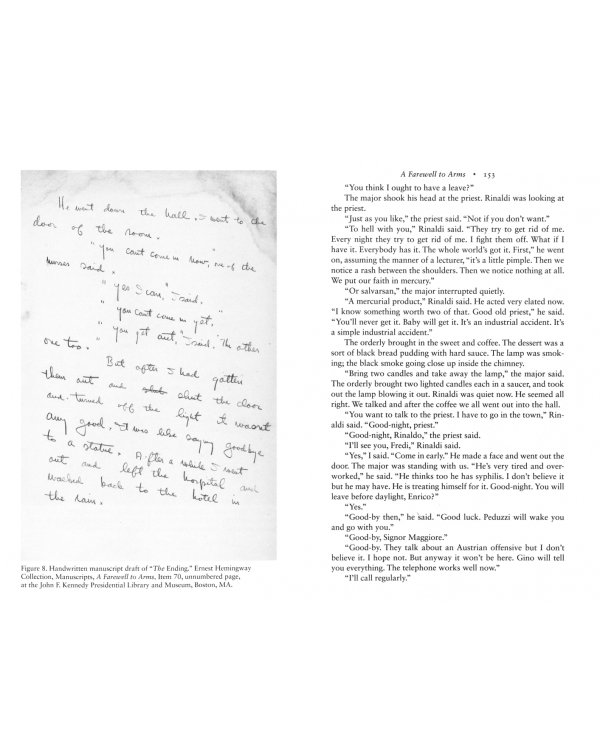 He went down the hall. I went to the
door of the room.
"You cant come in now," one of the
nurses said.
"Yes I can," I said.
"You cant come in yet.
"You get out," I said. "The other
one too."
But after I had gotten
them out and shut the door
and turned off the light it wasnt
any good. It was like saying goodbye
to a statue. After a while I went
out and left the hospital and
walked back to the hotel in
the rain.
Figure 8. Handwritten manuscript draft of "The Ending," Ernest Hemingway
Collection, Manuscripts, A Farewell to Arms, Item 70, unnumbered page,
at the John F. Kennedy Presidential Library and Museum, Boston, MA.
A Farewell to Arms • 153
"You think I ought to have a leave?"
The major shook his head at the priest. Rinaldi was looking at
the priest.
"Just as you like," the priest said. "Not if you don't want."
"To hell with you," Rinaldi said. "They try to get rid of me.
Every night they try to get rid of me. I fight them off. What if I
have it. Everybody has it. The whole world's got it. First," he went
on, assuming the manner of a lecturer, "it's a little pimple. Then we
notice a rash between the shoulders. Then we notice nothing at all.
We put our faith in mercury."
"Or salvarsan," the major interrupted quietly.
"A mercurial product," Rinaldi said. He acted very elated now.
"I know something worth two of that. Good old priest," he said.
"You'll never get it. Baby will get it. It's an industrial accident. It's
a simple industrial accident."
The orderly brought in the sweet and coffee. The dessert was a
sort of black bread pudding with hard sauce. The lamp was smok-
ing; the black smoke going close up inside the chimney.
"Bring two candles and take away the lamp," the major said.
The orderly brought two lighted candles each in a saucer, and took
out the lamp blowing it out. Rinaldi was quiet now. He seemed all
right. We talked and after the coffee we all went out into the hall.
"You want to talk to the priest. I have to go in the town," Rin-
aldi said. "Good-night, priest."
"Good-night, Rinaldo," the priest said.
"I'll see you, Fredi," Rinaldi said.
"Yes," I said. "Come in early." He made a face and went out the
door. The major was standing with us. "He's very tired and over-
worked," he said. "He thinks too he has syphilis. I don't believe it
but he may have. He is treating himself for it. Good-night. You will
leave before daylight, Enrico?"
"Yes."
"Good-by then," he said. "Good luck. Peduzzi will wake you
and go with you."
"Good-by, Signor Maggiore."
"Good-by. They talk about an Austrian offensive but I don't
believe it. I hope not. But anyway it won't be here. Gino will tell
you everything. The telephone works well now."
"I'll call regularly."